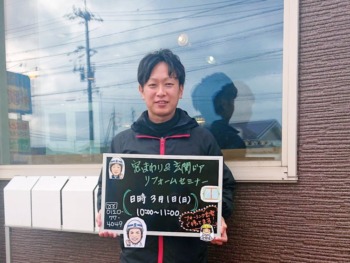 窓まわり&玄関ドア
リフォームセミナー
日時 3月1日(日)
10:00~11:00
0120-
77-
4049